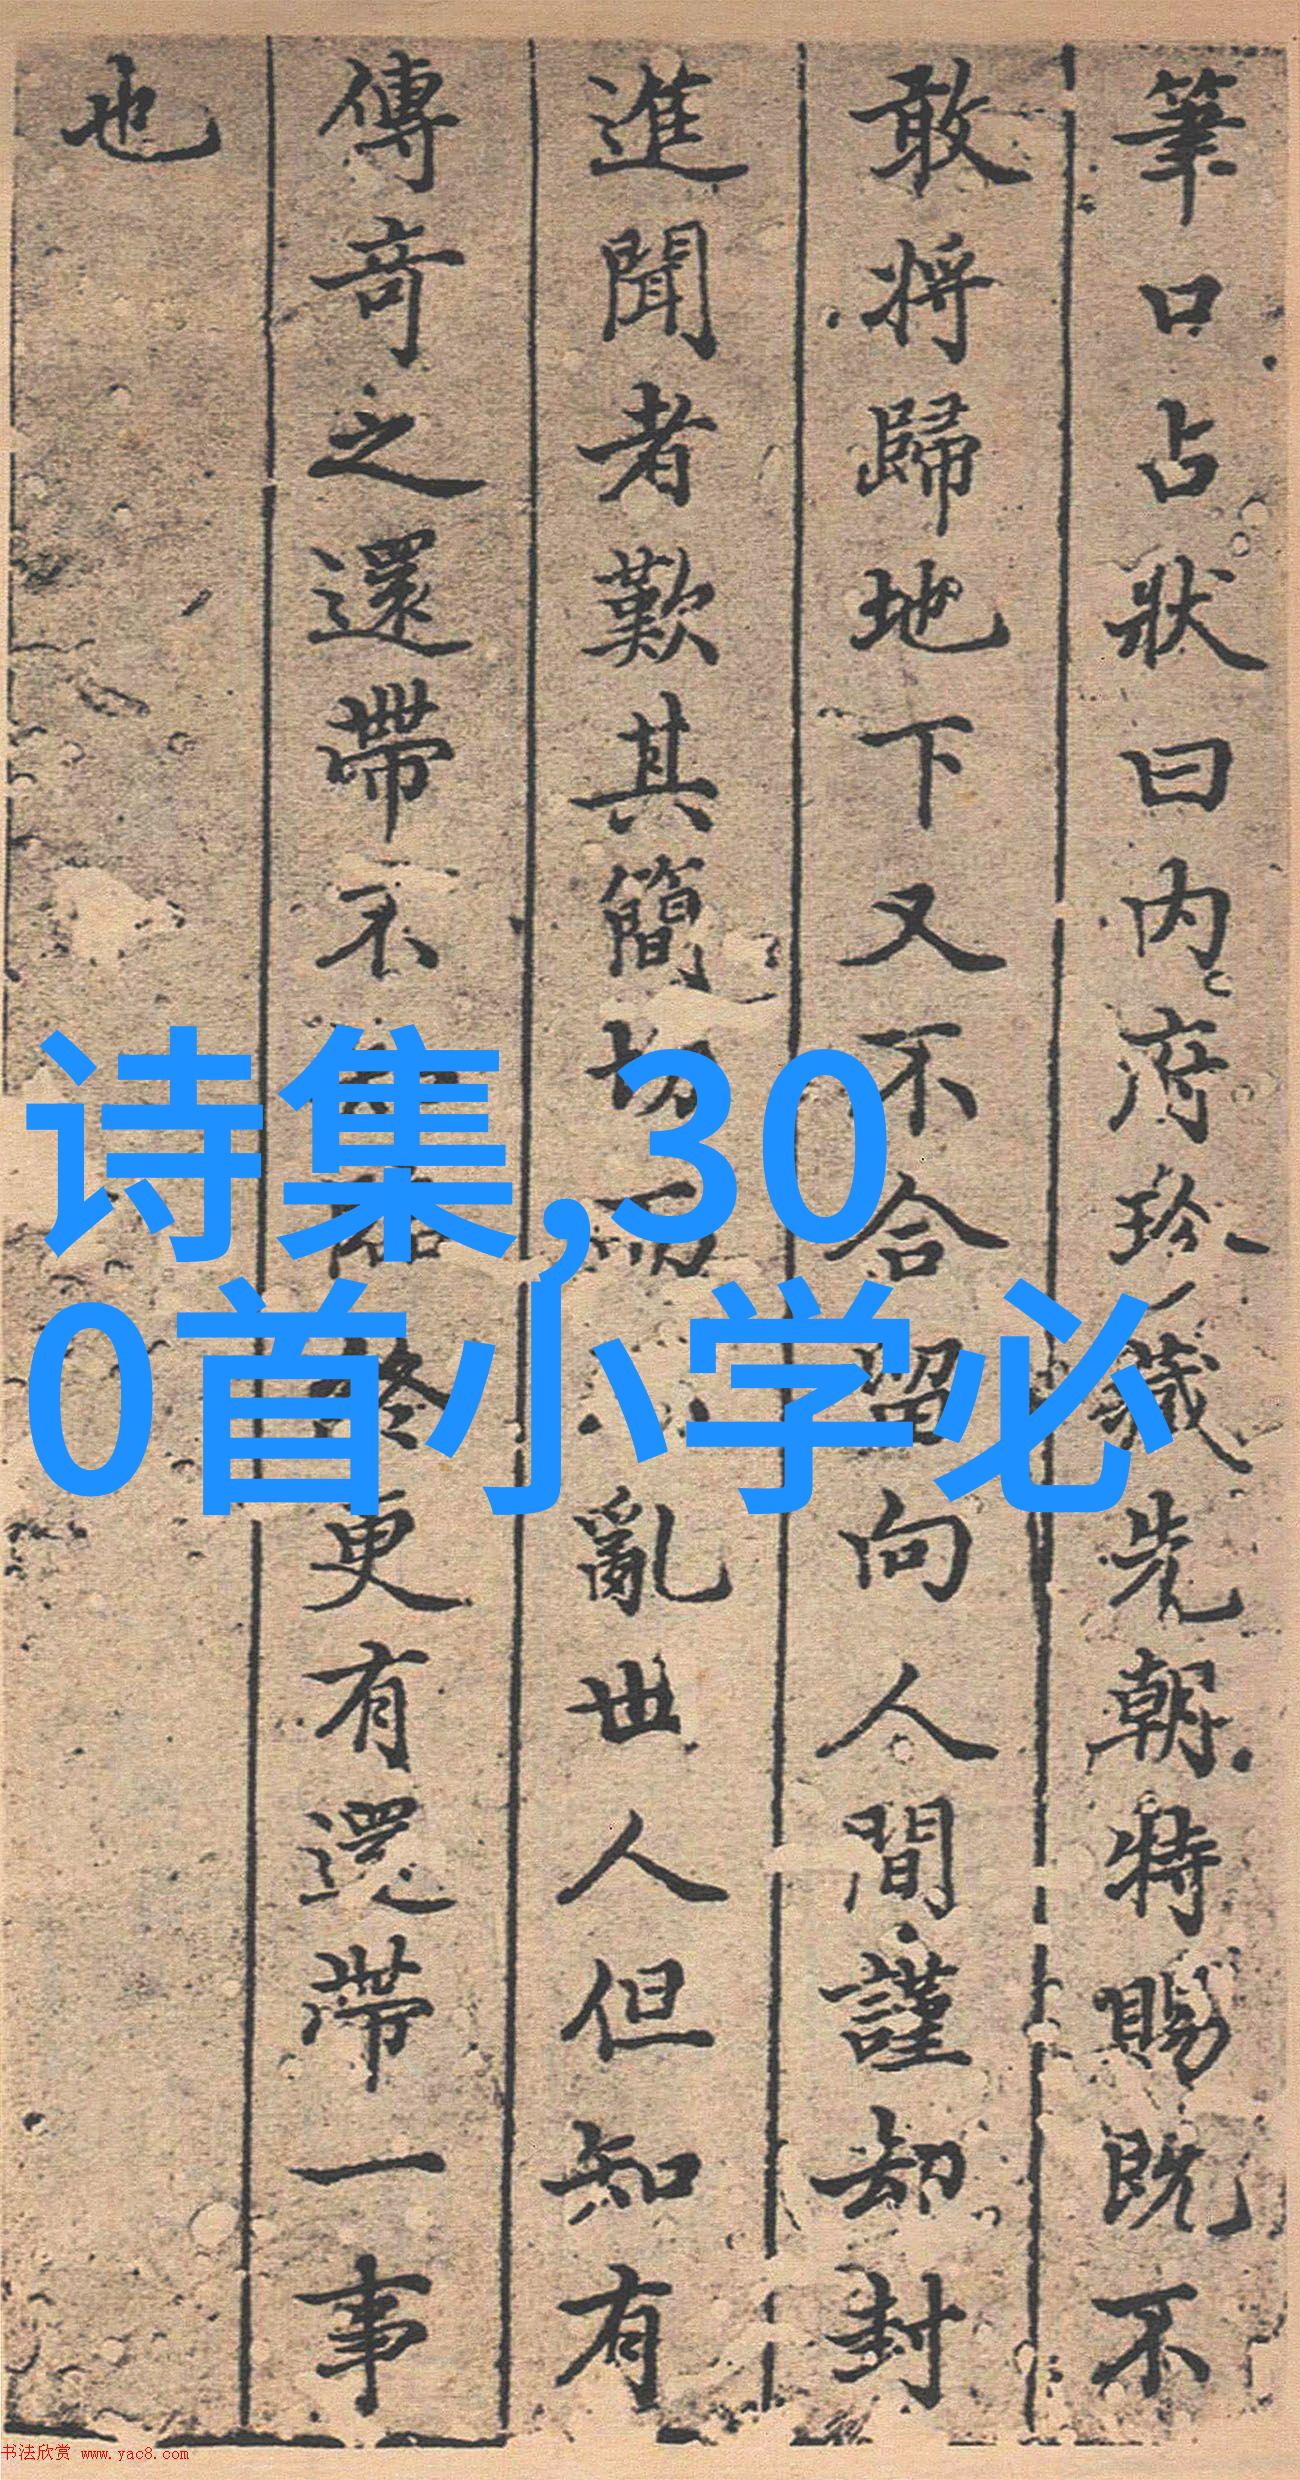 筆口占狀曰内府珍藏先朝特賜既不
敢將歸地下又不合留向人間謹却封
進聞者歎其簡切而亂世人但知有
傳奇之還帶不更有還帶一事
也
诗集,30
0首小学必
书法欣赏 www.yac8.com